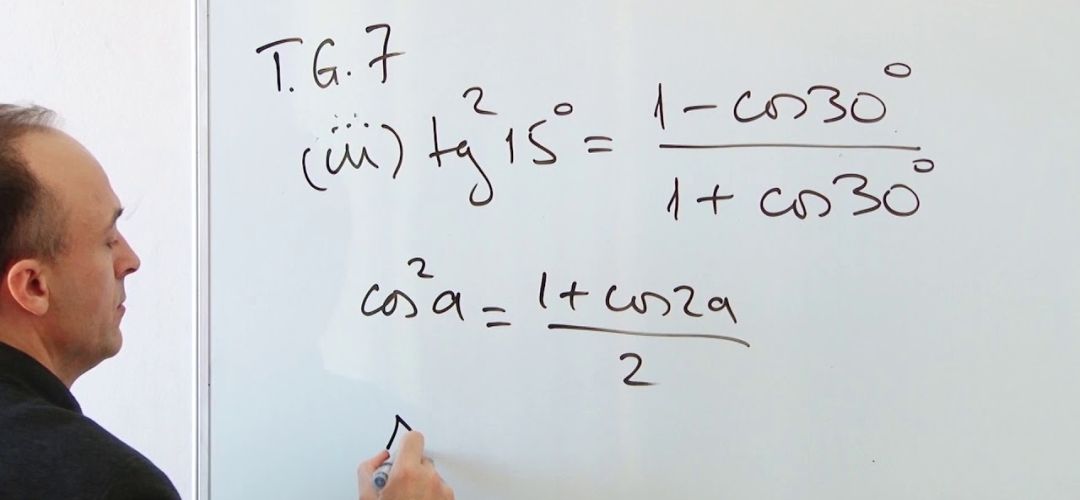 T.G.7
(iii) tg²15° = (1 - cos30°)/(1 + cos30°)
cos²a = (1 + cos2a)/2